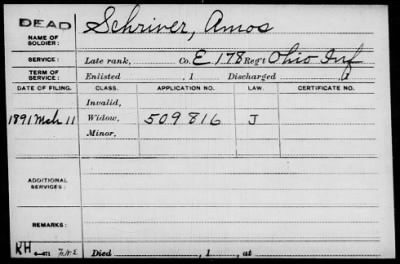 DEAD
NAME OF SOLDIER: Schriver, Amos
SERVICE: Late rank, Co. E 178 Reg't Ohio Inf
TERM OF SERVICE: Enlisted , 1 Discharged , 1
DATE OF FILING. CLASS. APPLICATION NO. LAW. CERTIFICATE NO.
Invalid,
1891 Mch 11 Widow, 509816 J
Minor,
ADDITIONAL SERVICES:
REMARKS:
RH
Died , 1 , at